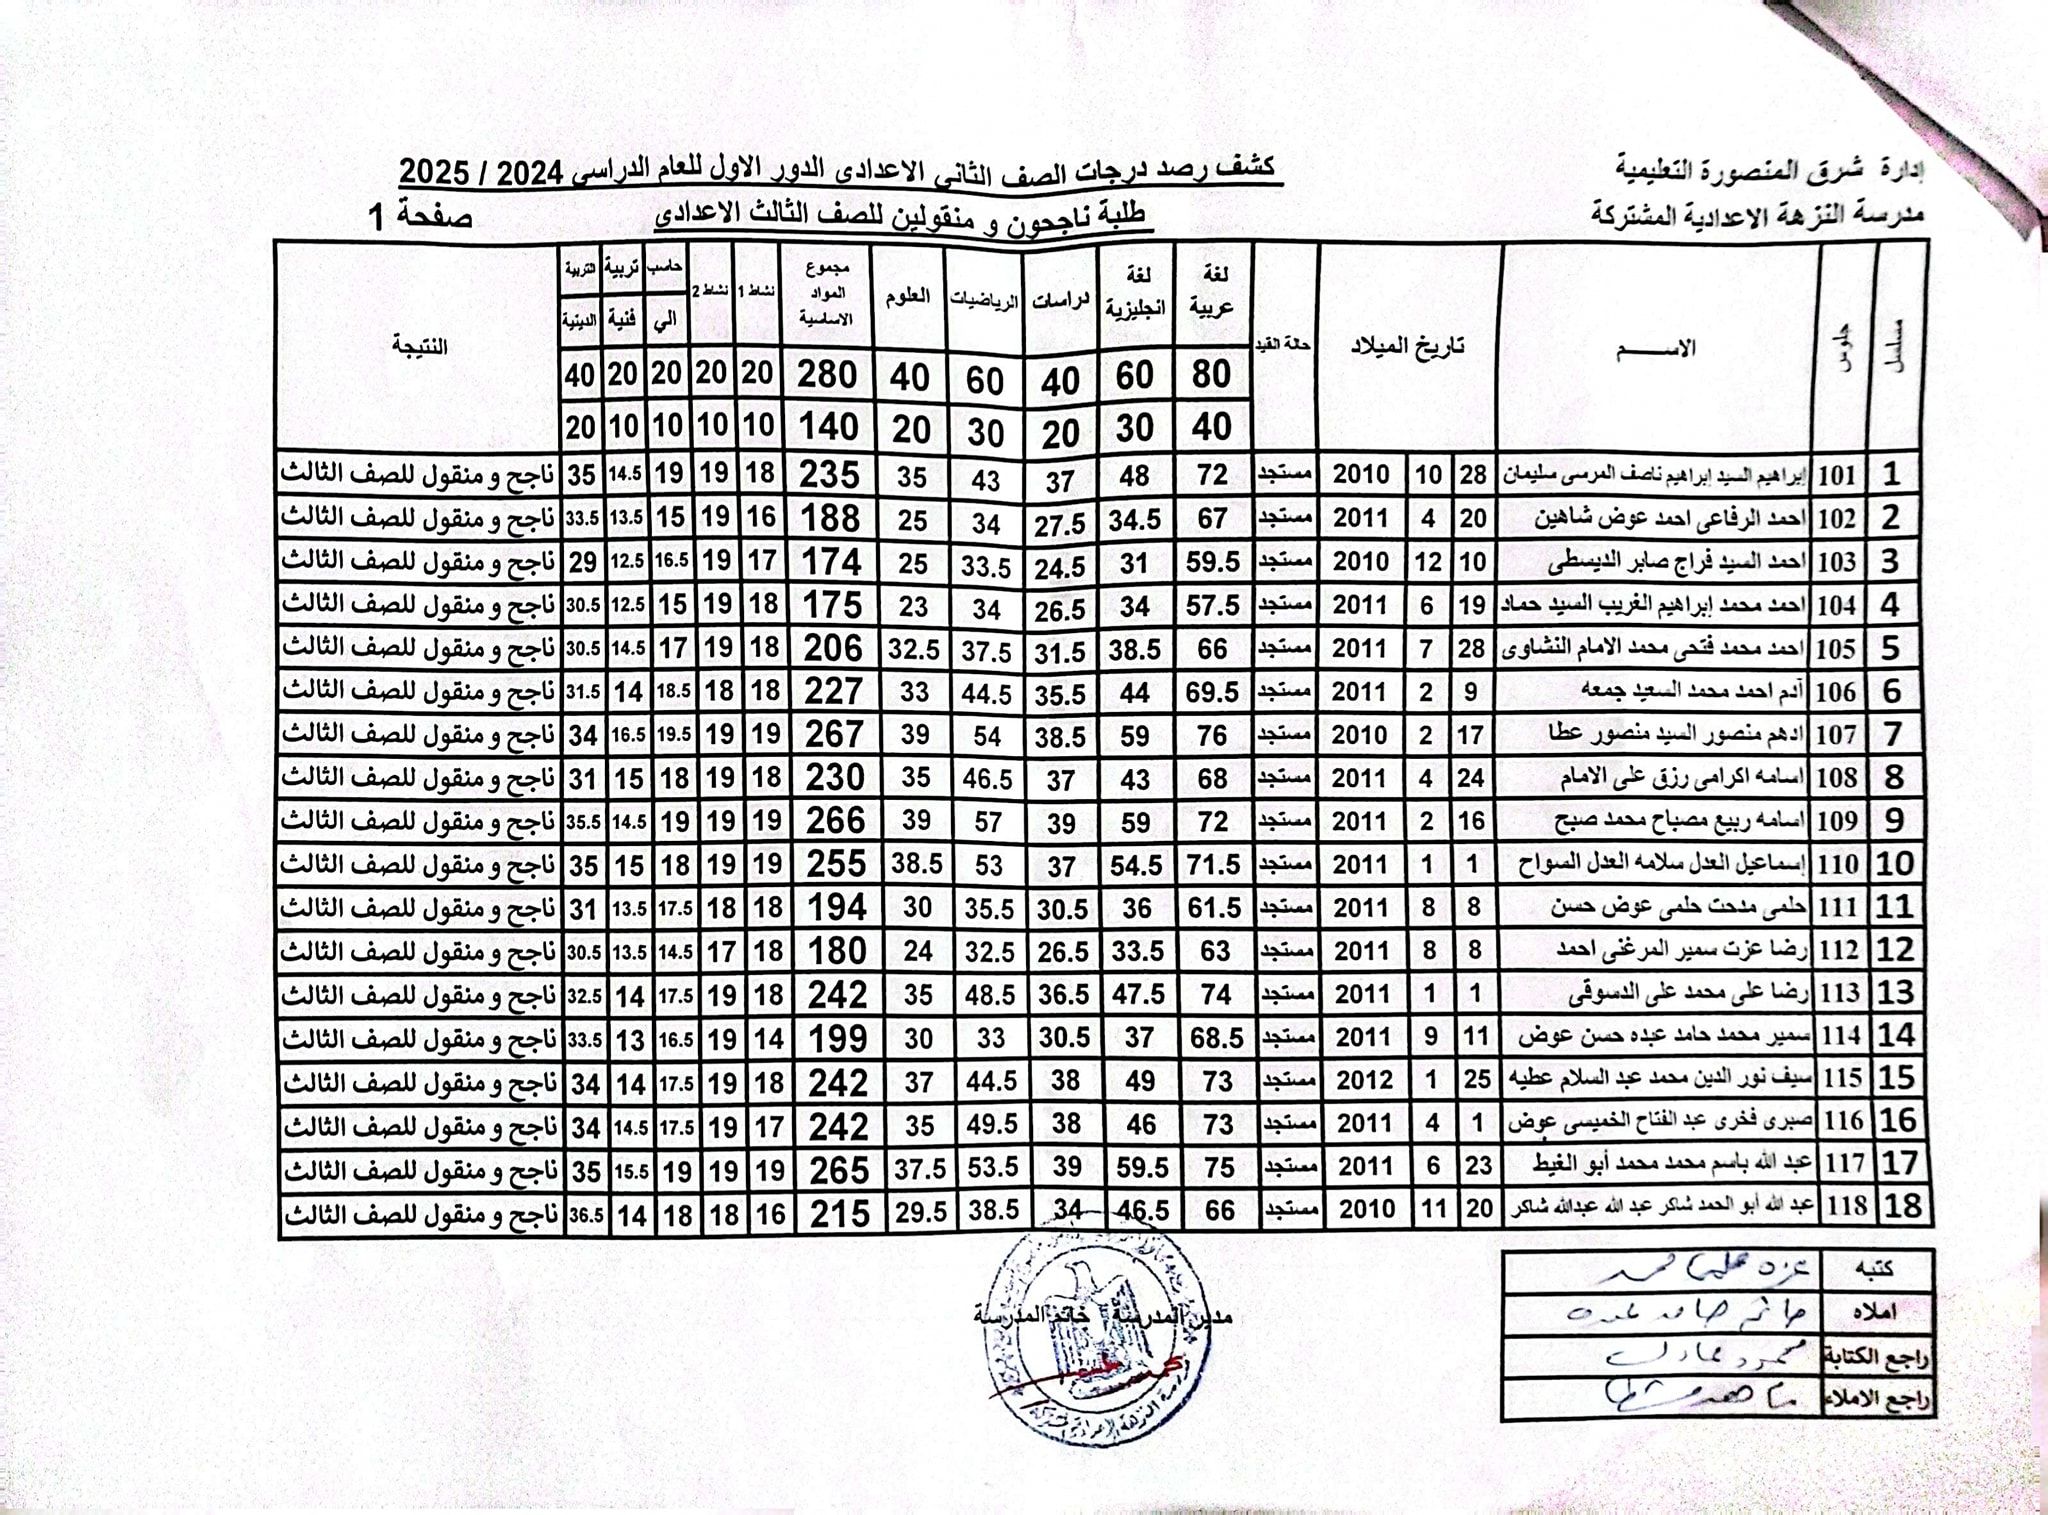 إدارة شرق المنصورة التعليمية
كشف رصد درجات الصف الثانى الاعدادى الدور الاول للعام الدراسي 2024 / 2025
مدرسة النزهة الاعدادية المشتركة
طلبة ناجحون و منقولين للصف الثالث الاعدادى
صفحة 1
مسلسل جلوس الاســـم تاريخ الميلاد حالة القيد لغة عربية لغة انجليزية دراسات الرياضيات العلوم مجموع المواد الاساسية نشاط 1 نشاط 2 حاسب الي تربية فنية التربية الدينية النتيجة
80 60 40 60 40 280 20 20 20 20 40
40 30 20 30 20 140 10 10 10 10 20
1 101 إبراهيم السيد إبراهيم ناصف المرسى سليمان 28 10 2010 مستجد 72 48 37 43 35 235 18 19 19 14.5 35 ناجح و منقول للصف الثالث
2 102 احمد الرفاعى احمد عوض شاهين 20 4 2011 مستجد 67 34.5 27.5 34 25 188 16 19 15 13.5 33.5 ناجح و منقول للصف الثالث
3 103 احمد السيد فراج صابر الديسطى 10 12 2010 مستجد 59.5 31 24.5 33.5 25 174 17 19 16.5 12.5 29 ناجح و منقول للصف الثالث
4 104 احمد محمد إبراهيم الغريب السيد حماد 19 6 2011 مستجد 57.5 34 26.5 34 23 175 18 19 15 12.5 30.5 ناجح و منقول للصف الثالث
5 105 احمد محمد فتحى محمد الامام النشاوى 28 7 2011 مستجد 66 38.5 31.5 37.5 32.5 206 18 19 17 14.5 30.5 ناجح و منقول للصف الثالث
6 106 آدم احمد محمد السعيد جمعه 9 2 2011 مستجد 69.5 44 35.5 44.5 33 227 18 18 18.5 14 31.5 ناجح و منقول للصف الثالث
7 107 ادهم منصور السيد منصور عطا 17 2 2010 مستجد 76 59 38.5 54 39 267 19 19 19.5 16.5 34 ناجح و منقول للصف الثالث
8 108 اسامه اكرامى رزق على الامام 24 4 2011 مستجد 68 43 37 46.5 35 230 18 19 18 15 31 ناجح و منقول للصف الثالث
9 109 اسامه ربيع مصباح محمد صبح 16 2 2011 مستجد 72 59 39 57 39 266 19 19 19 14.5 35.5 ناجح و منقول للصف الثالث
10 110 إسماعيل العدل سلامه العدل السواح 1 1 2011 مستجد 71.5 54.5 37 53 38.5 255 19 19 18 15 35 ناجح و منقول للصف الثالث
11 111 حلمى مدحت حلمى عوض حسن 8 8 2011 مستجد 61.5 36 30.5 35.5 30 194 18 18 17.5 13.5 31 ناجح و منقول للصف الثالث
12 112 رضا عزت سمير المرغنى احمد 8 8 2011 مستجد 63 33.5 26.5 32.5 24 180 18 17 14.5 13.5 30.5 ناجح و منقول للصف الثالث
13 113 رضا على محمد على الدسوقى 1 1 2011 مستجد 74 47.5 36.5 48.5 35 242 18 19 17.5 14 32.5 ناجح و منقول للصف الثالث
14 114 سمير محمد حامد عبده حسن عوض 11 9 2011 مستجد 68.5 37 30.5 33 30 199 14 19 16.5 13 33.5 ناجح و منقول للصف الثالث
15 115 سيف نور الدين محمد عبد السلام عطيه 25 1 2012 مستجد 73 49 38 44.5 37 242 18 19 17.5 14 34 ناجح و منقول للصف الثالث
16 116 صبرى فخرى عبد الفتاح الخميسى عوض 1 4 2011 مستجد 73 46 38 49.5 35 242 17 19 17.5 14.5 34 ناجح و منقول للصف الثالث
17 117 عبد الله باسم محمد محمد أبو الغيط 23 6 2011 مستجد 75 59.5 39 53.5 37.5 265 19 19 19 15.5 35 ناجح و منقول للصف الثالث
18 118 عبد الله أبو الحمد شاكر عبد الله عبدالله شاكر 20 11 2010 مستجد 66 46.5 34 38.5 29.5 215 16 18 18 14 36.5 ناجح و منقول للصف الثالث
كتبه
املاه
راجع الكتابة محمود عادل
راجع الاملاء
مدير المدرسة خاتم المدرسة